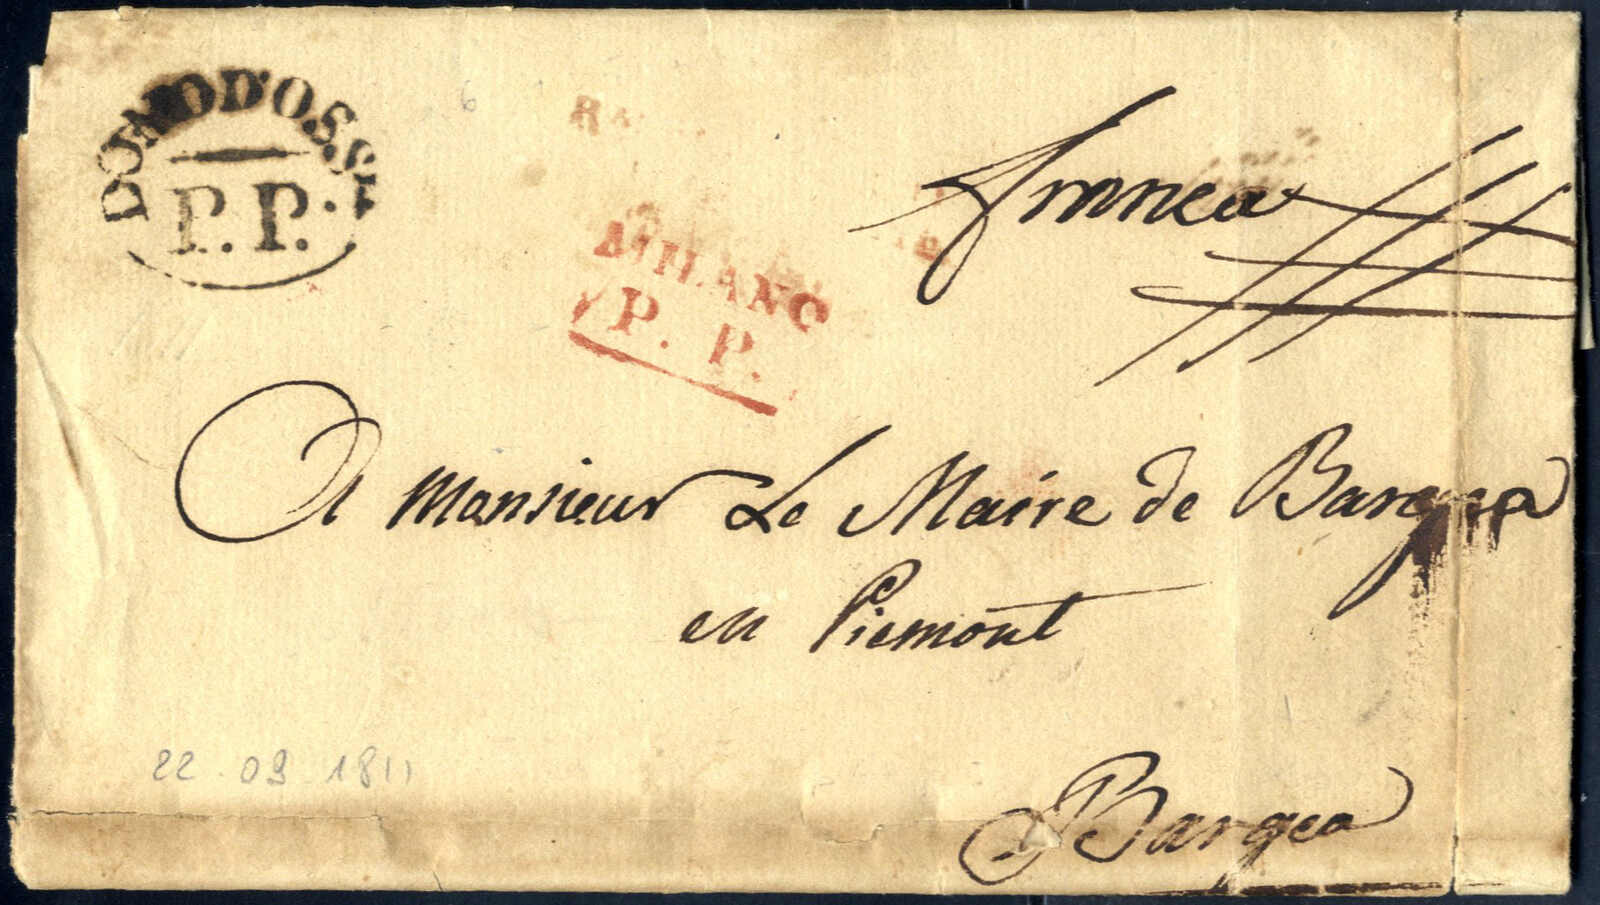 DOMOD'OS.SA
P.P.
franca
MILANO
P. P.
A Monsieur Le Maire de Bargea
en Piemont
22 09 1811
Bargea